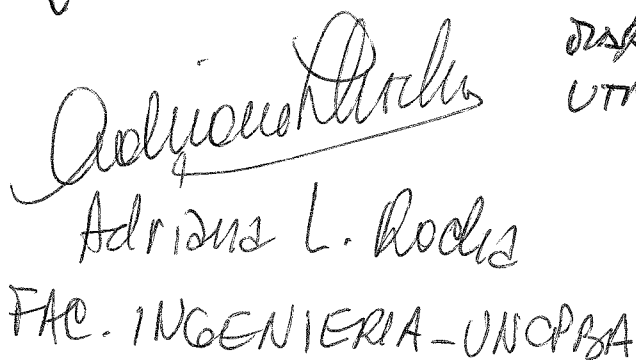 Adriana L. Rocha
FAC. INGENIERIA - UNCPBA